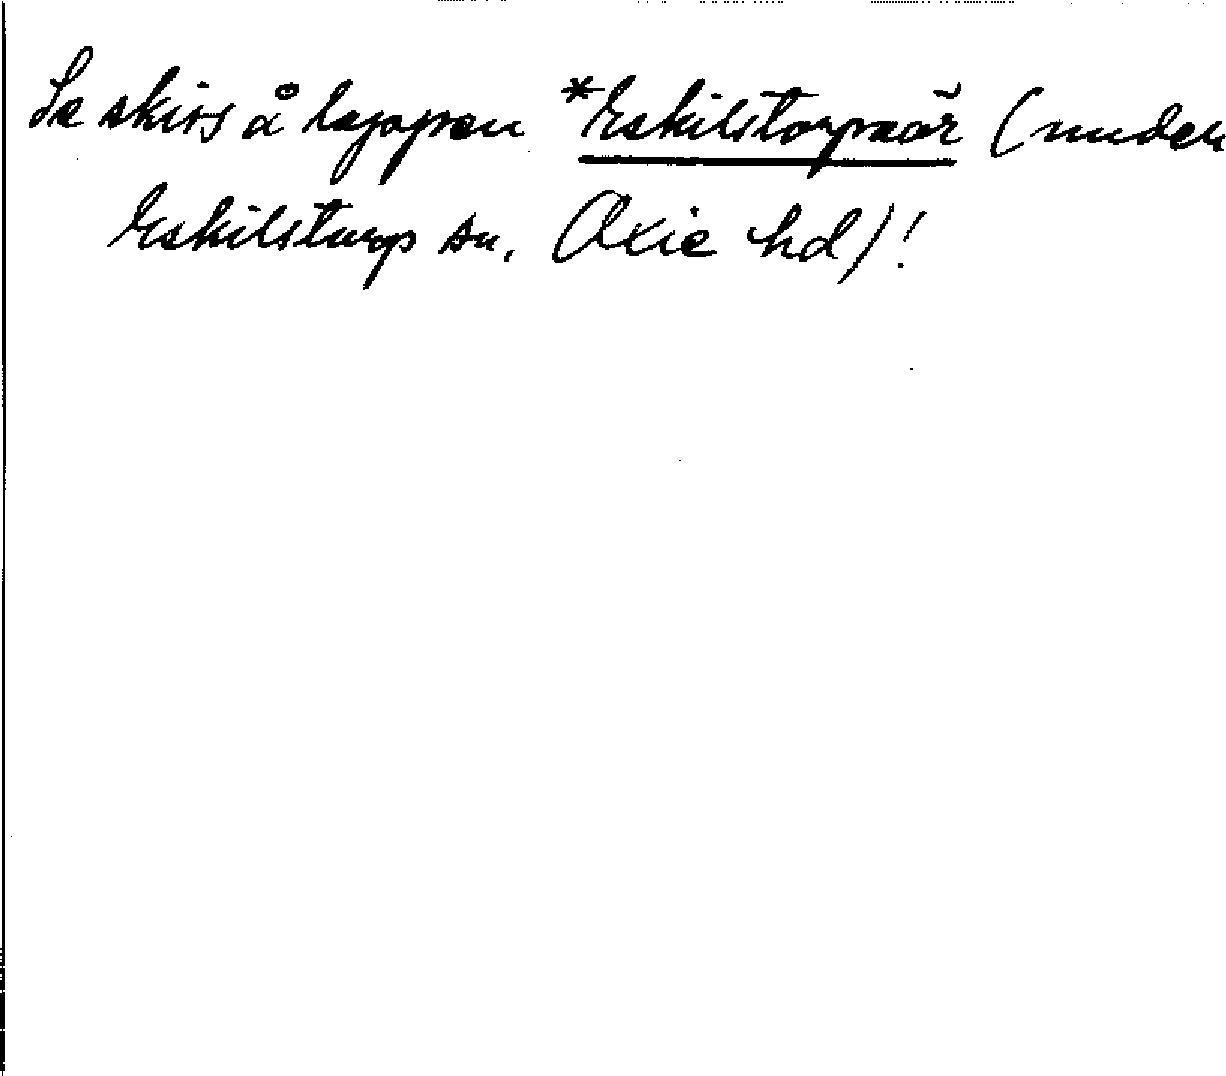 Se skiss å lappen *Eskilstorpaör (under
Eskilstorps sn, Oxie hd)!